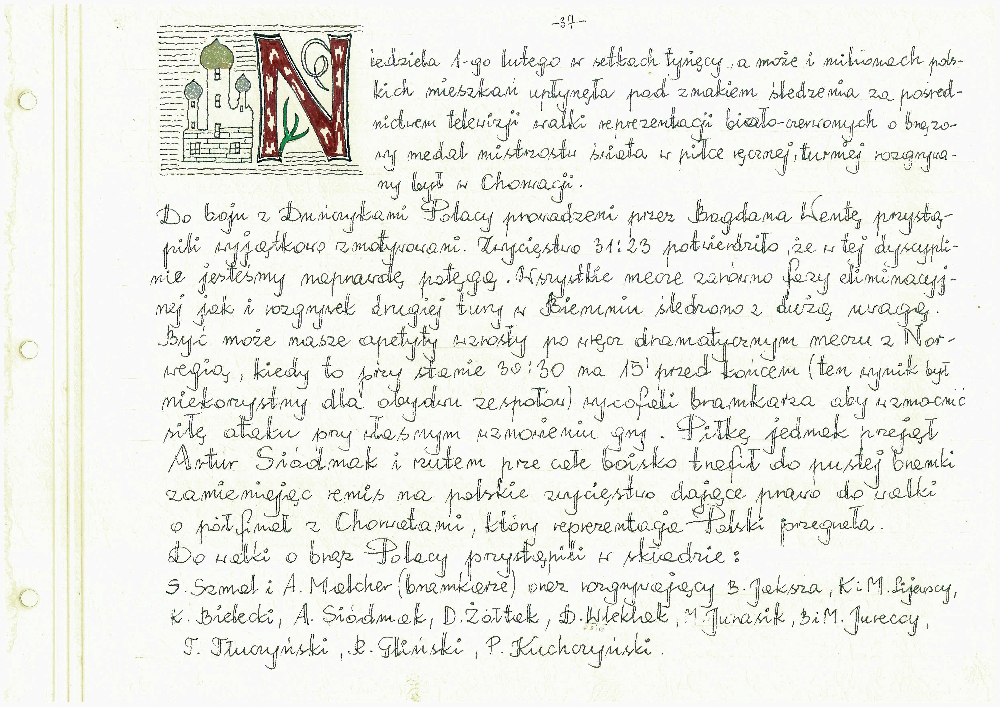 -37-
Niedziela 1-go lutego w setkach tysięcy, a może i milionach pols-
kich mieszkań upłynęła pod znakiem śledzenia za pośred-
nictwem telewizji walki reprezentacji biało-czerwonych o brązo-
wy medal mistrzostw świata w piłce ręcznej, turniej rozgrywa-
ny był w Chorwacji.
Do boju z Duńczykami Polacy prowadzeni przez Bogdana Wentę przystą-
pili wyjątkowo zmotywowani. Zwycięstwo 31:23 potwierdziło, że w tej dyscypli-
nie jesteśmy naprawdę potęgą. Wszystkie mecze zarówno fazy eliminacyj-
nej jak i rozgrywek drugiej tury w śledzono z dużą uwagą.
Być może nasze apetyty wzrosły po wręcz dramatycznym meczu z Nor-
wegią, kiedy to przy stanie 30:30 na 15' przed końcem (ten wynik był
niekorzystny dla obydwu zespołów) wycofali bramkarza aby wzmocnić
siłę ataku przy własnym wznowieniu gry. Piłkę jednak przejął
Artur Siódmak i rzutem prze całe boisko trafił do pustej bramki
zamieniając remis na polskie zwycięstwo dające prawo do walki
o półfinał z Chorwatami, który reprezentacja Polski przegrała.
Do walki o brąz Polacy przystąpili w składzie:
S. Szmal i A. Malcher (bramkarze) oraz rozgrywający B. Jaksza, K i M. Lijewscy,
K. Bielecki, A. Siódmak, D. Żółtak, D. Wleklak, M. Jurasik, B i M. Jureccy,
T. Tłuczyński, R. Gliński, P. Kuchczyński.